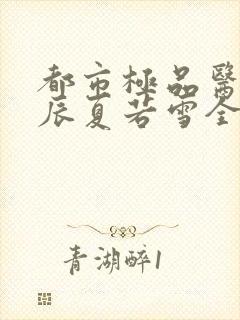 都市極品醫
辰夏若雪全
青湖醉1